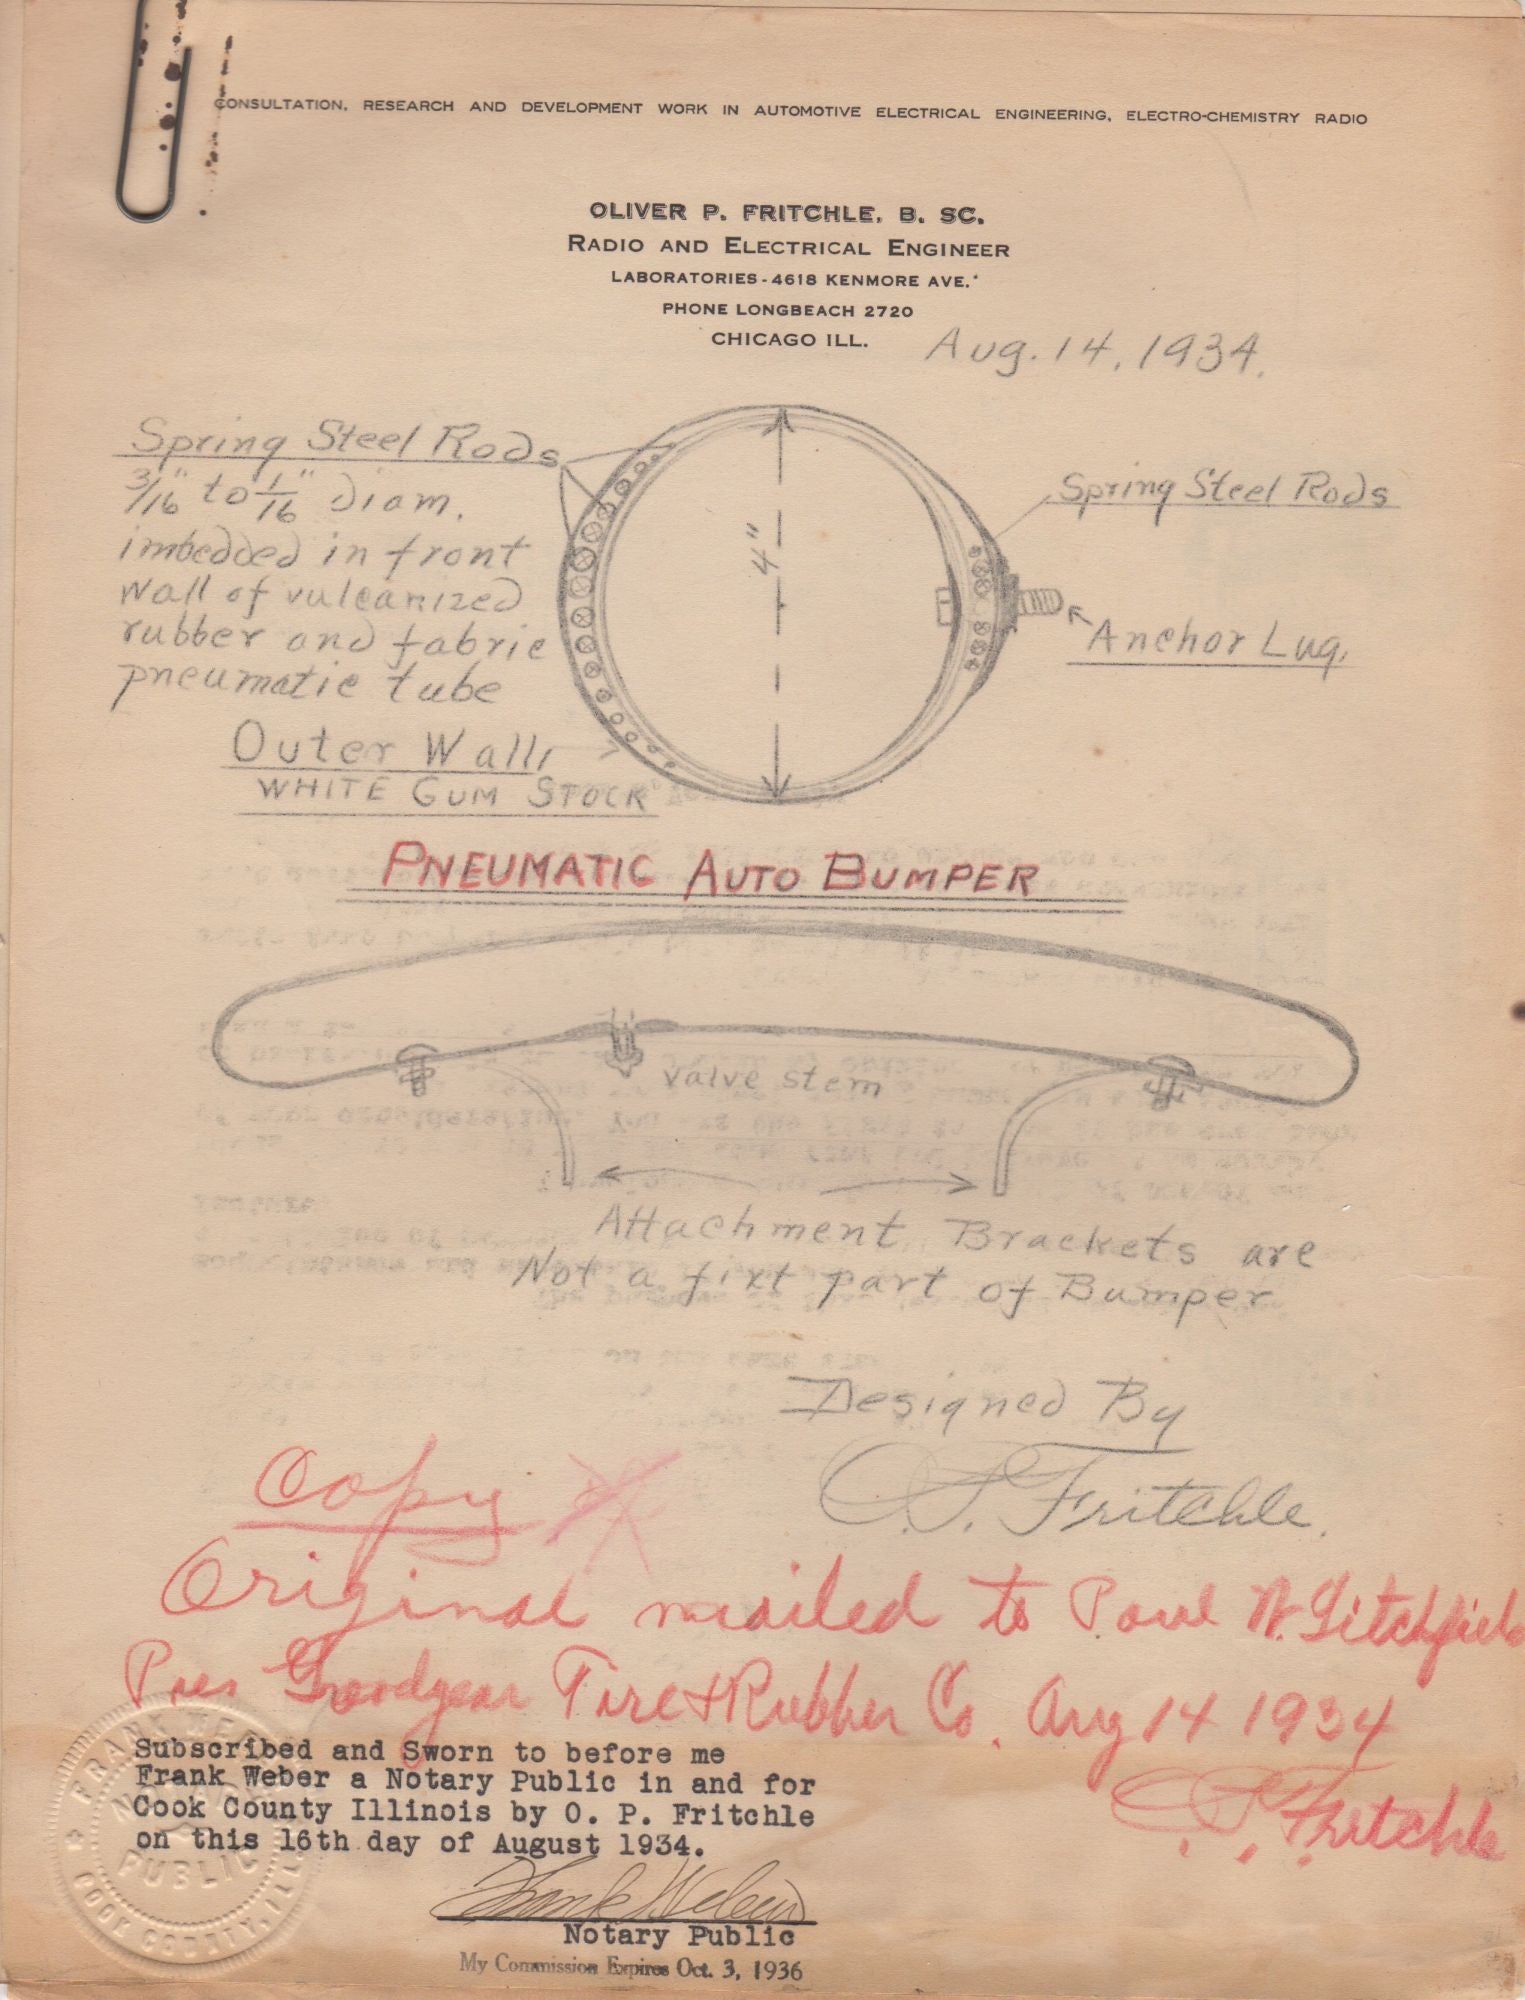 CONSULTATION, RESEARCH AND DEVELOPMENT WORK IN AUTOMOTIVE ELECTRICAL ENGINEERING, ELECTRO-CHEMISTRY RADIO
OLIVER P. FRITCHLE, B. SC.
RADIO AND ELECTRICAL ENGINEER
LABORATORIES-4618 KENMORE AVE.
PHONE LONGBEACH 2720
CHICAGO ILL.
Aug. 14, 1934.
Spring Steel Rods
3/16" to 1/16" Diam.
imbedded in front
wall of vulcanized
rubber and fabric
pneumatic tube
Outer Wall,
WHITE GUM STOCK
4"
Spring Steel Rods
Anchor Lug.
PNEUMATIC AUTO BUMPER
valve stem
Attachment Brackets are
Not a fixt part of Bumper
Designed By
O.P. Fritchle.
Copy
Original mailed to Paul W. Litchfield
Pres Goodyear Tire & Rubber Co. Aug 14 1934
O.P. Fritchle
Subscribed and Sworn to before me
Frank Weber a Notary Public in and for
Cook County Illinois by O. P. Fritchle
on this 16th day of August 1934.
Frank Weber
Notary Public
My Commission Expires Oct. 3, 1936
FRANK WEBER
NOTARY
PUBLIC
COOK COUNTY, ILL.